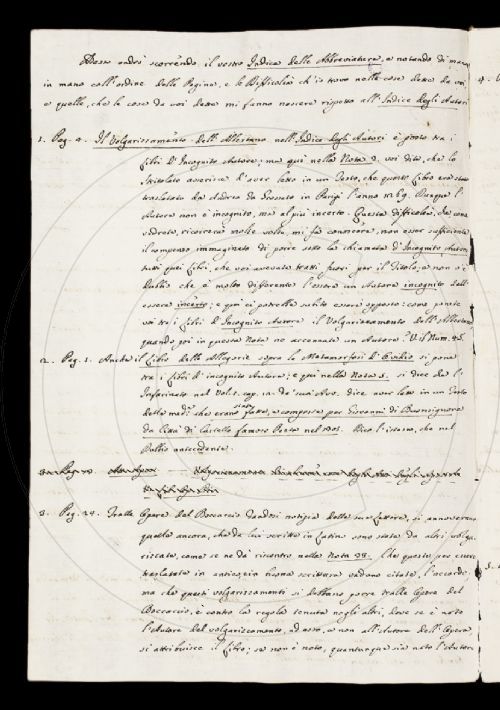 Dopo andrò scorrendo il vostro Indice delle Abbreviature, e notando di mano
in mano coll'ordine delle Pagine, e le Difficoltà ch'io trovo nelle cose dette da voi,
e quelle, che le cose da voi dette mi fanno nascere rispetto all'Indice degli Autori
1. Pag. 4. Il Volgarizzamento dell'Albertano nell'Indice degli Autori è posto tra i
Libri d'Incognito Autore; ma qui nella Nota 2. voi dite, che lo
Stritolato asserisce d'aver letto in un Testo, che questo Libro era stato
traslatato da Andrea da Grosseto in Parigi l'anno 1269. Dunque l'
Autore non è incognito, ma al più incerto. Questa difficoltà, che come
vedrete, ricorrerà molte volte, mi fa conoscere, non esser sufficiente
il compenso immaginato di porre sotto la chiamata d'Incognito Autore
tutti quei Libri, che voi avevate tratti fuori per il Titolo, e non v'è
dubbio che è molto differente l'essere un Autore incognito dall'
essere incerto; e qui ci potrebbe subito essere opposto: come ponete
voi tra i Libri d'Incognito Autore il Volgarizzamento dell'Albertano
quando poi in questa Nota ne accennate un Autore? V. il Num. 45.
2. Pag. 5. Anche il Libro delle Allegorie sopra le Metamorfosi d'Ovidio si pone
tra i Libri d'incognito Autore; e qui nella Nota 5. si dice che l'
Infarinato nel Vol. 2. cap. 12. de' suoi Avv. dice aver letto in un Testo
della med.ª che erano state fatte, e composte per Giovanni di Buonsignore
da Città di Castello famoso Poeta nel
antecedente.
3. Pag. 24. Tralle Opere del Boccaccio dandosi notizia delle sue Lettere, si annoverano
quelle ancora, che da lui scritte in Latino sono state da altri volga-
rizzate, come se ne dà riscontro nella Nota 28. Che queste per essere
traslatate in antica e buona scrittura vadano citate, l'accordo;
ma che questi volgarizzamenti si debbano porre tralle Opere del
Boccaccio, è contro la regola tenuta negli altri, dove se è noto
l'Autore del volgarizzamento, ad esso, e non all'Autore dell'Opera,
si attribuisce il Libro; se non è noto, quantunque sia noto l'Autore